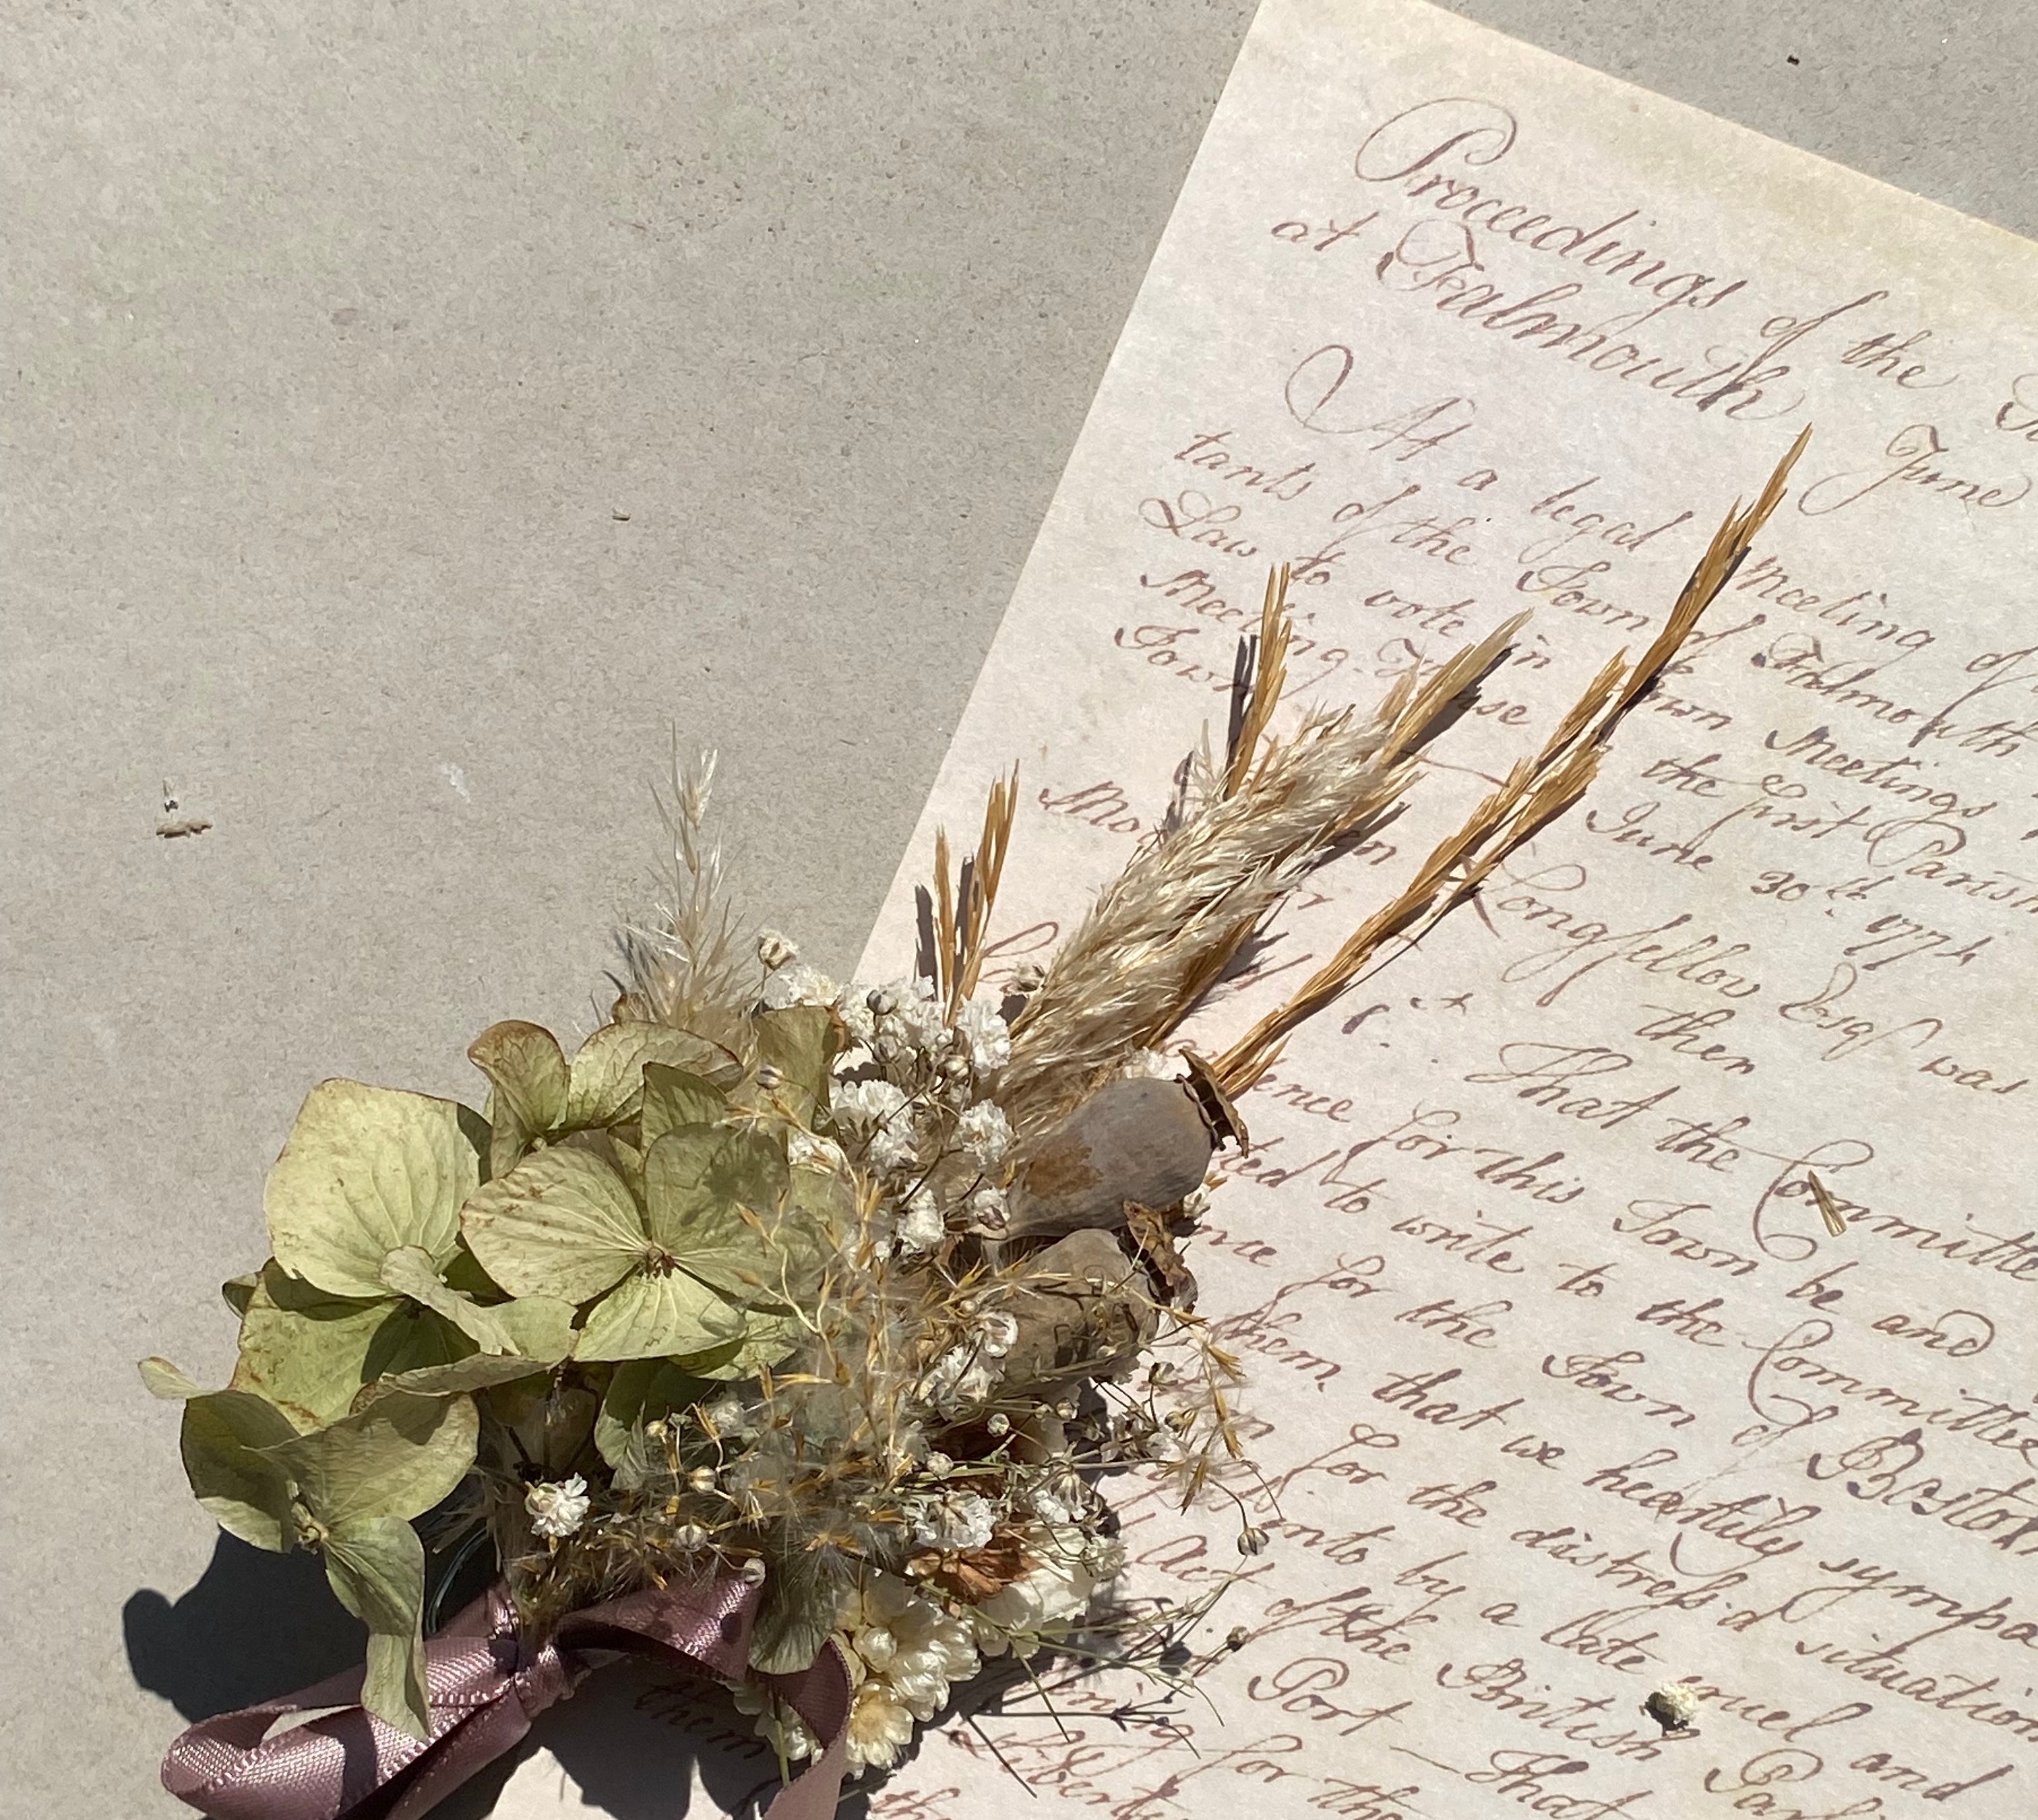 Proceedings of the
at Falmouth June
At a legal Meeting of
tants of the Town of Falmouth
Law to vote in Town Meetings
Meeting House the first Parish
Town June 30th. 1774
Longfellow Esqr was
then
That the Committee
for this Town be and
ted to write to the Committee
for the Town of Boston
them that we heartily sympa
for the distress'd situation
by a late cruel and
Act of the British Parl
Port — That
for the
Liberty
them
the